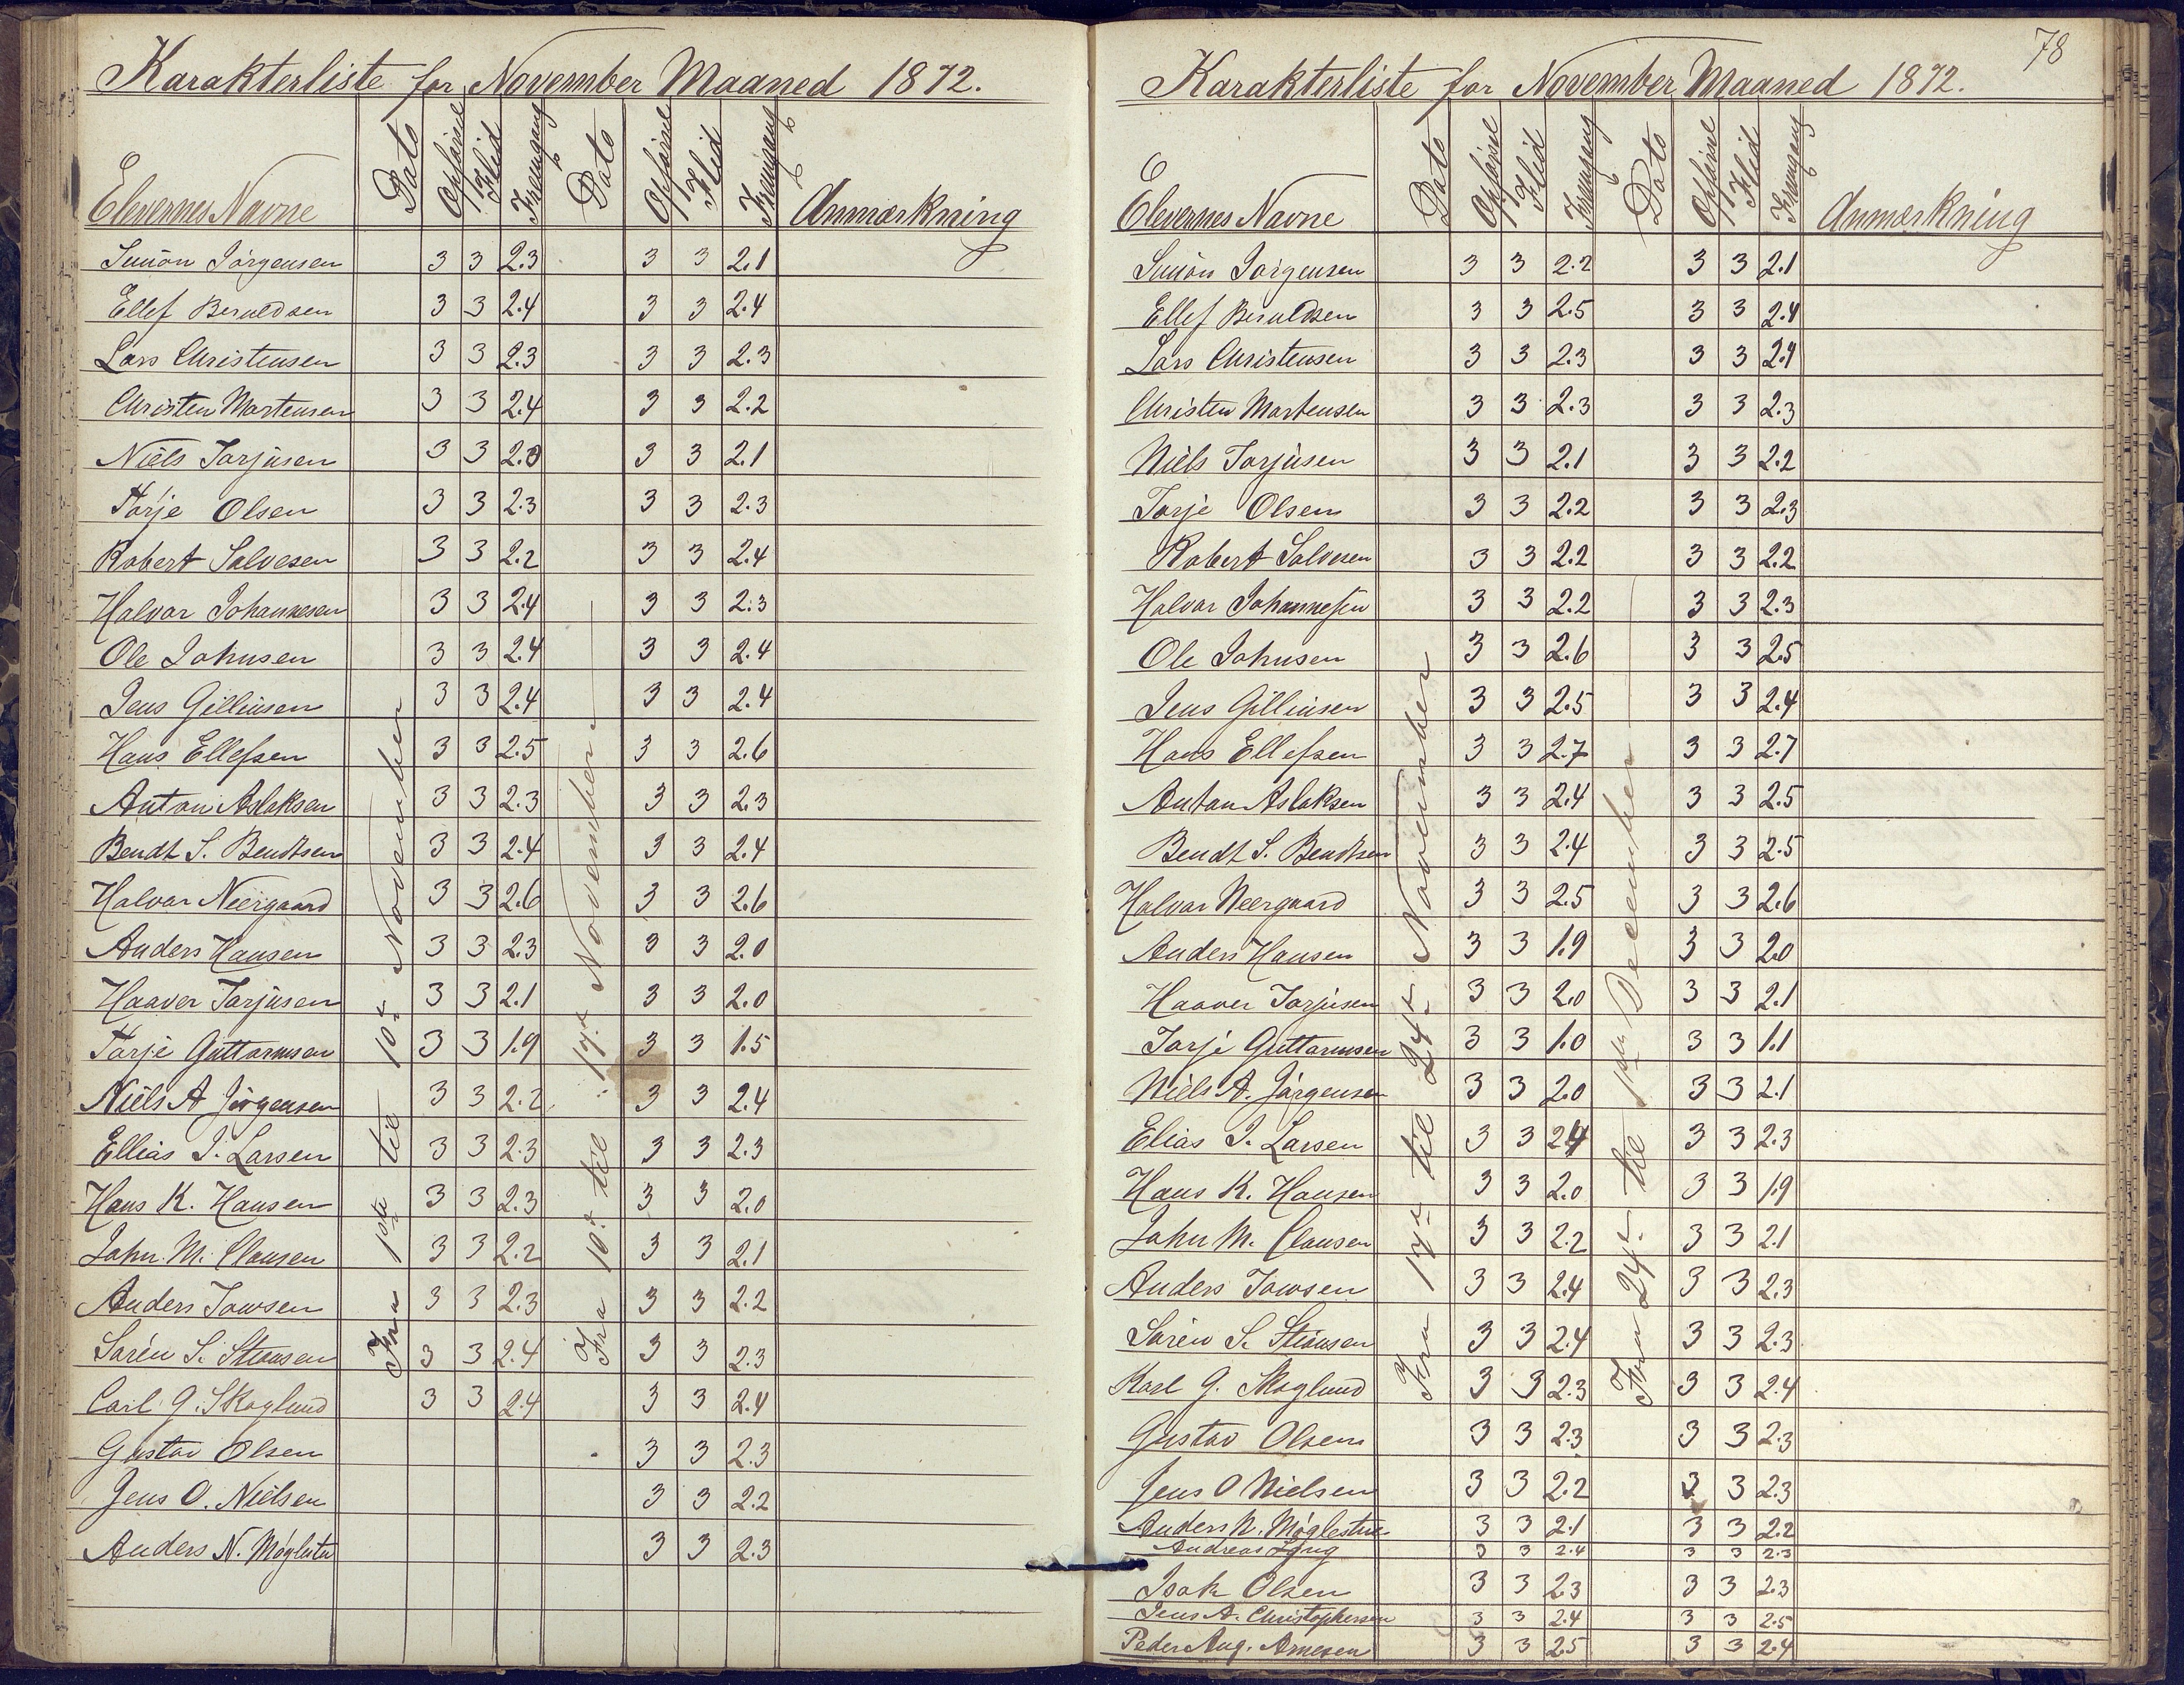 Karakterliste for November Maaned 1872.
Elevernes Navne Dato Opførsel Flid Fremgang Dato Opførsel Flid Fremgang Anmærkning
Fra 1ste til 10de November
Fra 10de til 17de November
Simon Jørgensen 3 3 2.3 3 3 2.1
Ellef Beruldsen 3 3 2.4 3 3 2.4
Lars Christensen 3 3 2.3 3 3 2.3
Christen Mortensen 3 3 2.4 3 3 2.2
Niels Torjusen 3 3 2.3 3 3 2.1
Torje Olsen 3 3 2.3 3 3 2.3
Robert Salvesen 3 3 2.2 3 3 2.4
Halvor Johannesen 3 3 2.4 3 3 2.3
Ole Johnsen 3 3 2.4 3 3 2.4
Jens Gilliusen 3 3 2.4 3 3 2.4
Hans Ellefsen 3 3 2.5 3 3 2.6
Anton Aslaksen 3 3 2.3 3 3 2.3
Bendt S. Bendtsen 3 3 2.4 3 3 2.4
Halvor Neergaard 3 3 2.6 3 3 2.6
Anders Hansen 3 3 2.3 3 3 2.0
Haaver Torjusen 3 3 2.1 3 3 2.0
Torje Guttormsen 3 3 1.9 3 3 1.5
Niels A Jørgensen 3 3 2.2 3 3 2.4
Ellias J. Larsen 3 3 2.3 3 3 2.3
Hans K. Hansen 3 3 2.3 3 3 2.0
John M. Clausen 3 3 2.2 3 3 2.1
Anders 3 3 2.3 3 3 2.2
Søren S. 3 3 2.4 3 3 2.3
Carl G. Skoglund 3 3 2.4 3 3 2.4
Gustav Olsen 3 3 2.3
Jens O. Nielsen 3 3 2.2
Anders N. Møglestu 3 3 2.3
78
Karakterliste for November Maaned 1872.
Elevernes Navne Dato Opførsel Flid Fremgang Dato Opførsel Flid Fremgang Anmærkning
Fra 17de til 24de November
Fra 24de til 1ste December
Simon Jørgensen 3 3 2.2 3 3 2.1
Ellef Beruldsen 3 3 2.5 3 3 2.4
Lars Christensen 3 3 2.3 3 3 2.4
Christen Mortensen 3 3 2.3 3 3 2.3
Niels Torjusen 3 3 2.1 3 3 2.2
Torje Olsen 3 3 2.2 3 3 2.3
Robert Salvesen 3 3 2.2 3 3 2.2
Halvor Johannesen 3 3 2.2 3 3 2.3
Ole Johnsen 3 3 2.6 3 3 2.5
Jens Gilliusen 3 3 2.5 3 3 2.4
Hans Ellefsen 3 3 2.7 3 3 2.7
Anton Aslaksen 3 3 2.4 3 3 2.5
Bendt S. Bendtsen 3 3 2.4 3 3 2.5
Halvor Neergaard 3 3 2.5 3 3 2.6
Anders Hansen 3 3 1.9 3 3 2.0
Haaver Torjusen 3 3 2.0 3 3 2.1
Torje Guttormsen 3 3 1.0 3 3 1.1
Niels A. Jørgensen 3 3 2.0 3 3 2.1
Elias J. Larsen 3 3 2.4 3 3 2.3
Hans K. Hansen 3 3 2.0 3 3 1.9
John M. Clausen 3 3 2.2 3 3 2.1
Anders 3 3 2.4 3 3 2.3
Søren S. 3 3 2.4 3 3 2.3
Karl G. Skoglund 3 3 2.3 3 3 2.4
Gustav Olsen 3 3 2.3 3 3 2.3
Jens O Nielsen 3 3 2.2 3 3 2.3
Anders N. Møglestue 3 3 2.1 3 3 2.2
Andreas 3 3 2.4 3 3 2.3
Isak Olsen 3 3 2.3 3 3 2.3
Jens A. Christophersen 3 3 2.4 3 3 2.5
Peder Aug. Arnesen 3 3 2.5 3 3 2.4